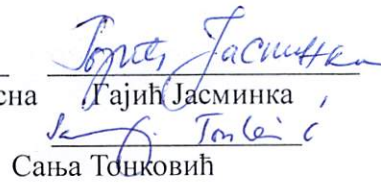 Гајић Јасминка
сна Гајић Јасминка
Тонковић
Сања Тонковић